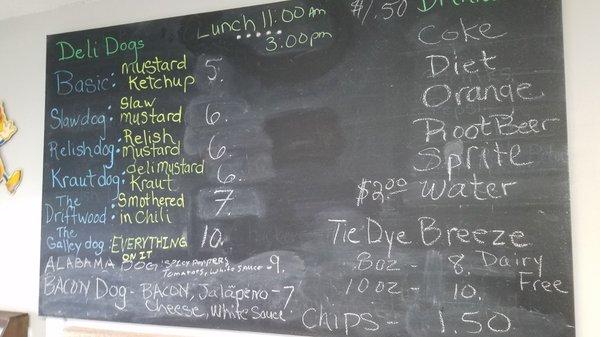 Deli Dogs
Lunch 11:00 Am
3:00pm
Basic: mustard Ketchup 5.
Slawdog: Slaw mustard 6.
Relishdog: Relish mustard 6.
Krautdog: deli mustard Kraut 6
The Driftwood: Smothered in Chili 7
The Galleydog: EVERYTHING ON IT 10.
ALABAMA DOG, SPICY PEPPERS Tomatoes, White sauce - 9.
BACON Dog - BACON, Jalapeño - 7
Cheese, White Sauce
$1.50
Coke
Diet
Orange
Root Beer
Sprite
$2.00 Water
Tie Dye Breeze
8oz - 8. Dairy
10oz - 10. Free
Chips - 1.50